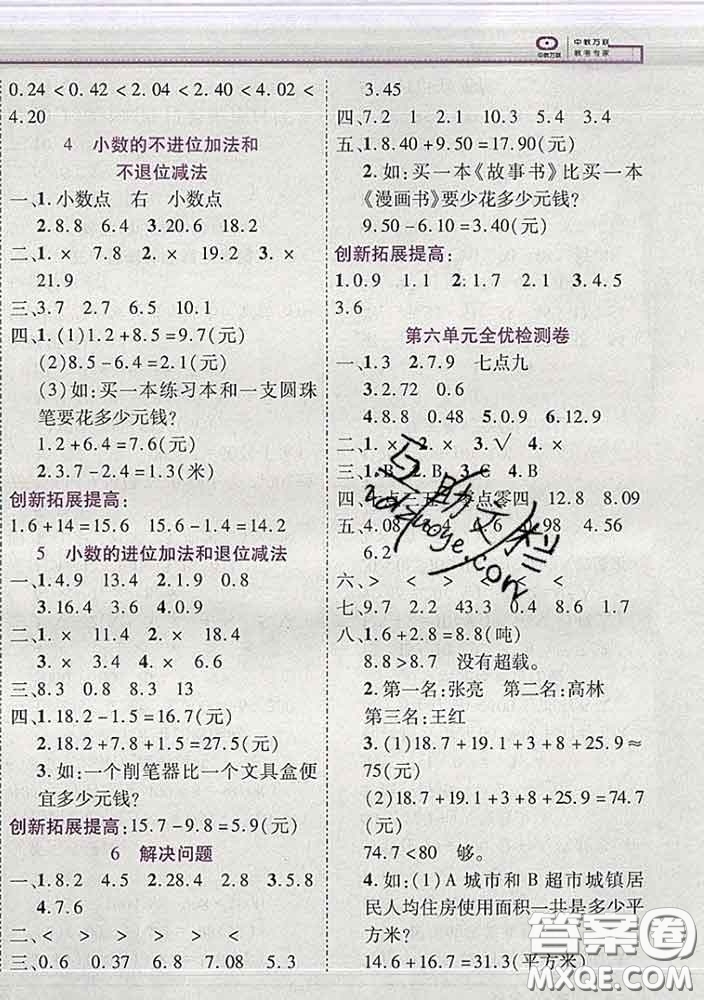 中教万联
中教万联
教考专家
0.24<0.42<2.04<2.40<4.02<
4.20
4 小数的不进位加法和
不退位减法
一、1.小数点 右 小数点
2.8.8 6.4 3.20.6 18.2
二、1.× 7.8 2.× 19.2 3.×
21.9
三、3.7 2.7 6.5 10.1
四、1.(1)1.2+8.5=9.7(元)
(2)8.5-6.4=2.1(元)
(3)如:买一本练习本和一支圆珠
笔要花多少元钱?
1.2+6.4=7.6(元)
2.3.7-2.4=1.3(米)
创新拓展提高:
1.6+14=15.6 15.6-1.4=14.2
5 小数的进位加法和退位减法
一、1.4.9 13.4 2.1.9 0.8
3.16.4 3.6 4.0.9
二、1.× 11.4 2.× 18.4
3.× 3.4 4.× 6.6
三、8.3 0.8 8.3 13
四、1.18.2-1.5=16.7(元)
2.18.2+7.8+1.5=27.5(元)
3.如:一个削笔器比一个文具盒便
宜多少元钱?
创新拓展提高:15.7-9.8=5.9(元)
6 解决问题
一、1.8.2 4.5 2.28.4 2.8 3.5.8
4.7.6
二、< > > > > <
三、0.6 0.37 6.8 7.08 5.3
3.45
四、7.2 1 2.1 10.3 5.4 3.4
五、1.8.40+9.50=17.90(元)
2.如:买一本《故事书》比买一本
《漫画书》要少花多少元钱?
9.50-6.10=3.40(元)
创新拓展提高:
1.0.9 1.1 2.1.7 2.1 3.4.5
3.6
第六单元全优检测卷
一、1.3 2.7.9 七点九
3.2.72 0.6
4.8.8 0.48 5.0.9 6.12.9
二、1.× 2.× 3.√ 4.×
三、1.B 2.B 3.C 4.B
四、点三五 零点零四 12.8 8.09
五、4.08 4.6 0.98 4.56
6.2
六、> > > < < <
七、9.7 2.2 43.3 0.4 8.6 1.9
八、1.6+2.8=8.8(吨)
8.8>8.7 没有超载。
2.第一名:张亮 第二名:高林
第三名:王红
3.(1)18.7+19.1+3+8+25.9≈
75(元)
(2)18.7+19.1+3+8+25.9=74.7
(元)
74.7<80 够。
4.如:(1)A城市和B超市城镇居
民人均住房使用面积一共是多少平
方米?
14.6+16.7=31.3(平方米)
互助文档
zuoye.com
答案圈
MXQE.COM